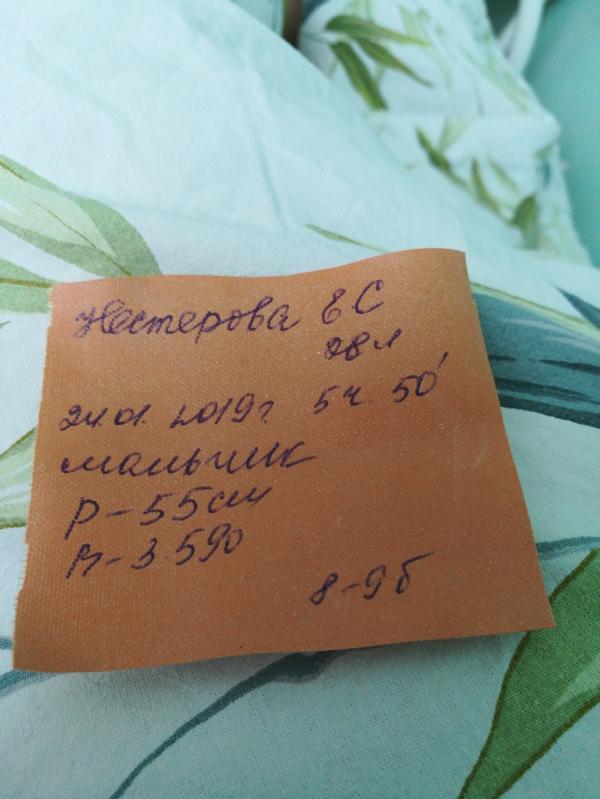 Нестерова ЕС
28 л
24.01.2019г. 5ч 50'
мальчик
р-55см
м-3590
8-9б